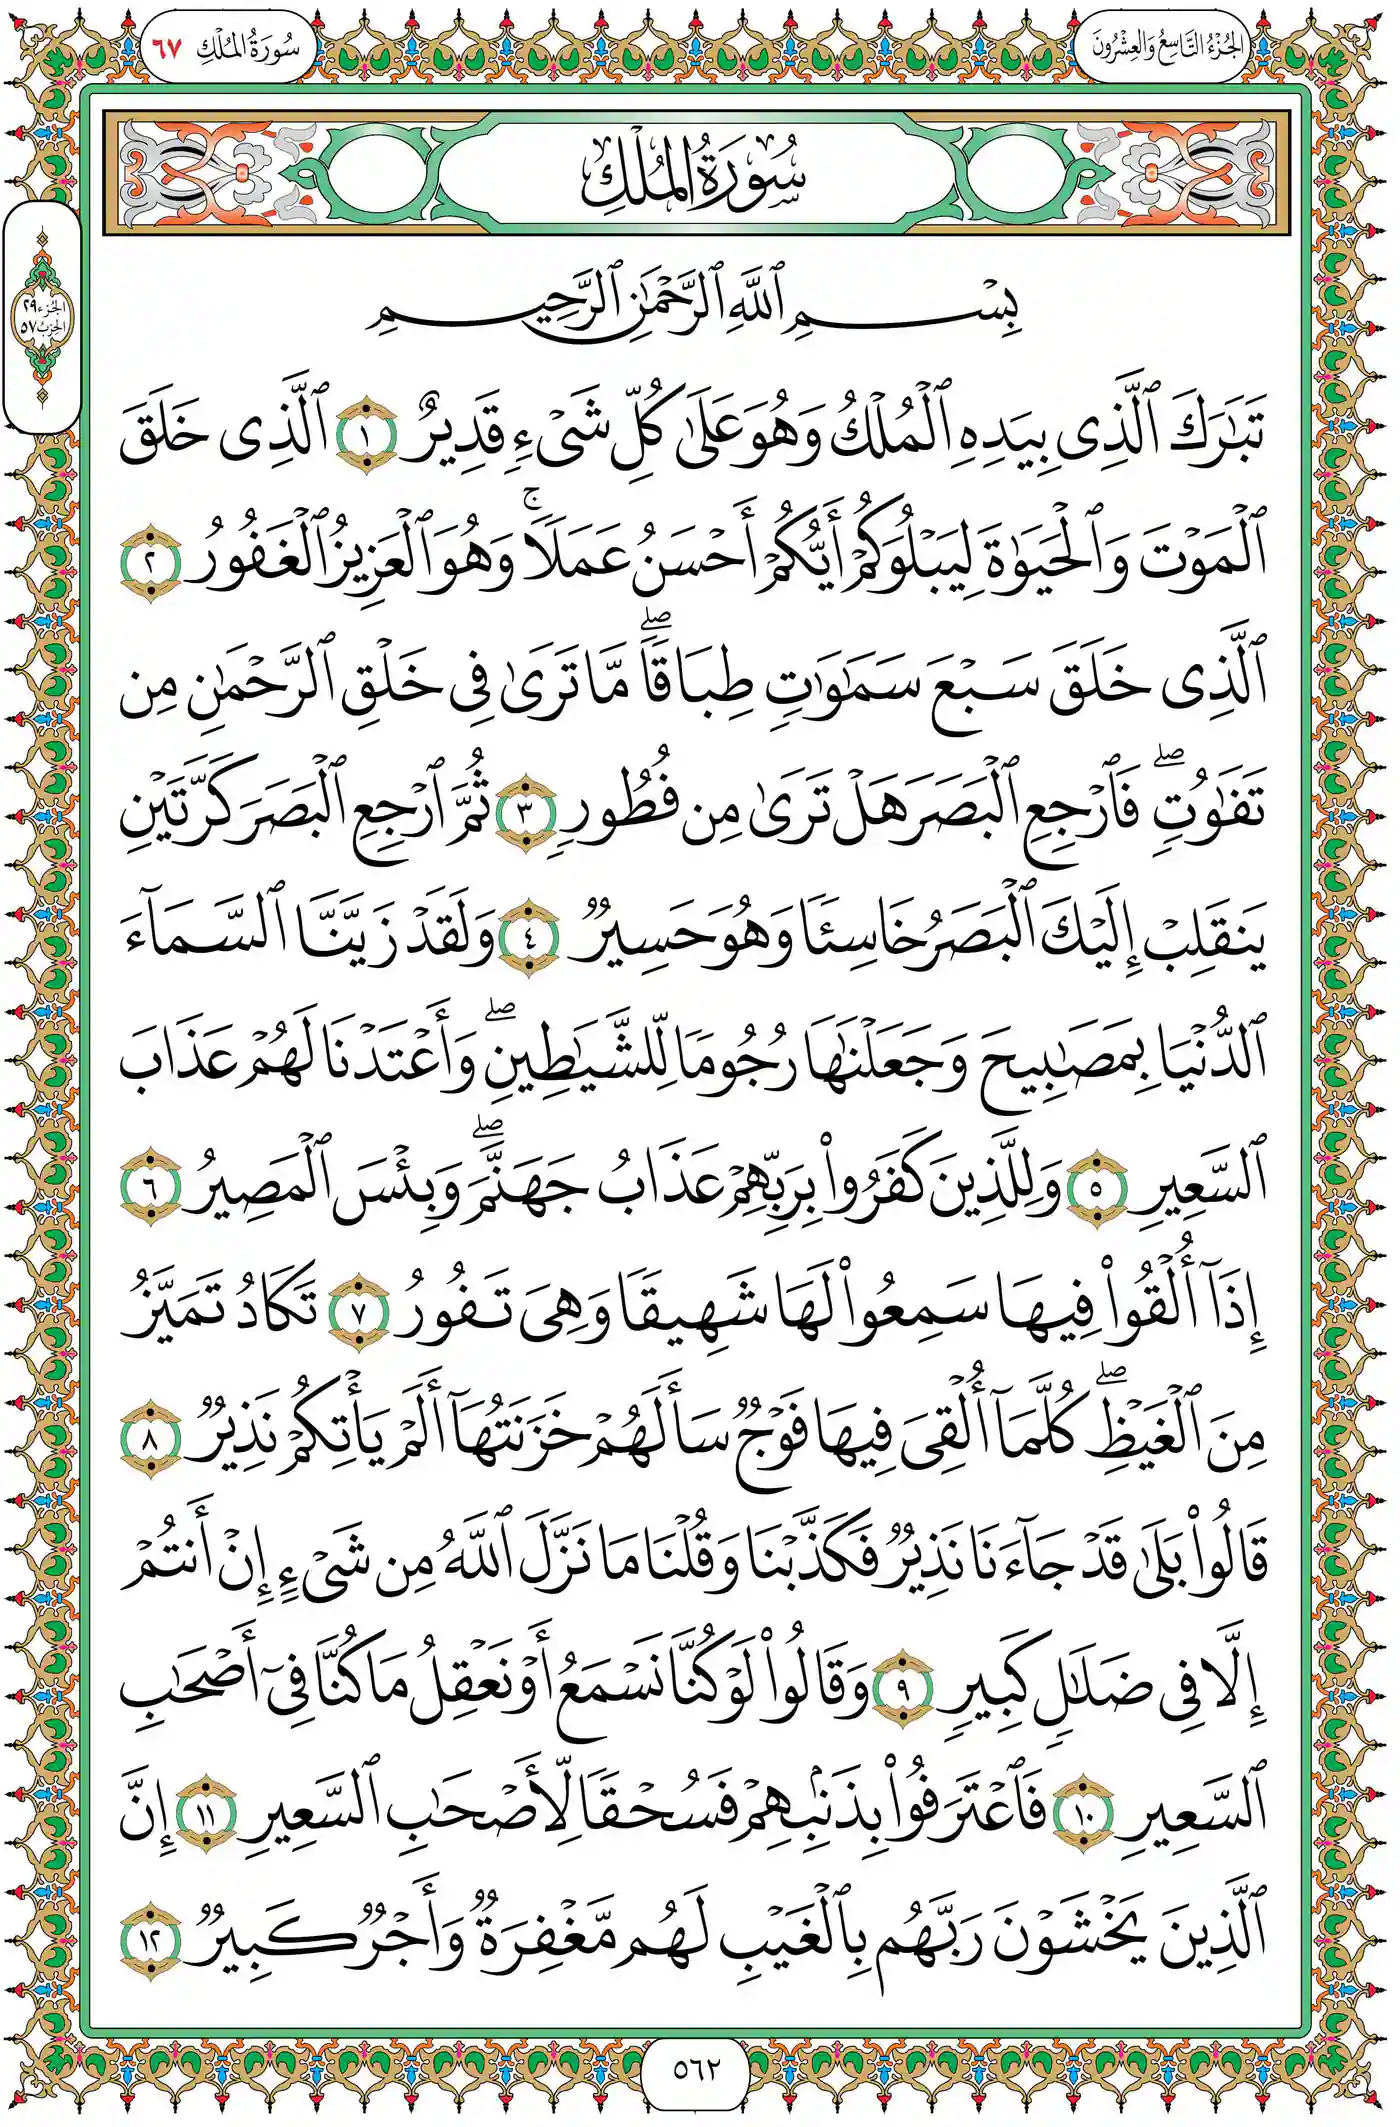 الجُزْءُ التَّاسِعُ وَالعِشْرُونَ
سُورَةُ المُلْكِ ٦٧
سُورَةُ المُلْكِ
الجزء ٢٩
الحزب ٥٧
بِسْمِ ٱللَّهِ ٱلرَّحْمَٰنِ ٱلرَّحِيمِ
تَبَٰرَكَ ٱلَّذِى بِيَدِهِ ٱلْمُلْكُ وَهُوَ عَلَىٰ كُلِّ شَىْءٍ قَدِيرٌ ١ ٱلَّذِى خَلَقَ
ٱلْمَوْتَ وَٱلْحَيَوٰةَ لِيَبْلُوَكُمْ أَيُّكُمْ أَحْسَنُ عَمَلًا ۚ وَهُوَ ٱلْعَزِيزُ ٱلْغَفُورُ ٢
ٱلَّذِى خَلَقَ سَبْعَ سَمَٰوَٰتٍ طِبَاقًا ۖ مَّا تَرَىٰ فِى خَلْقِ ٱلرَّحْمَٰنِ مِن
تَفَٰوُتٍ ۖ فَٱرْجِعِ ٱلْبَصَرَ هَلْ تَرَىٰ مِن فُطُورٍ ٣ ثُمَّ ٱرْجِعِ ٱلْبَصَرَ كَرَّتَيْنِ
يَنقَلِبْ إِلَيْكَ ٱلْبَصَرُ خَاسِئًا وَهُوَ حَسِيرٌ ٤ وَلَقَدْ زَيَّنَّا ٱلسَّمَآءَ
ٱلدُّنْيَا بِمَصَٰبِيحَ وَجَعَلْنَٰهَا رُجُومًا لِّلشَّيَٰطِينِ ۖ وَأَعْتَدْنَا لَهُمْ عَذَابَ
ٱلسَّعِيرِ ٥ وَلِلَّذِينَ كَفَرُوا۟ بِرَبِّهِمْ عَذَابُ جَهَنَّمَ ۖ وَبِئْسَ ٱلْمَصِيرُ ٦
إِذَآ أُلْقُوا۟ فِيهَا سَمِعُوا۟ لَهَا شَهِيقًا وَهِىَ تَفُورُ ٧ تَكَادُ تَمَيَّزُ
مِنَ ٱلْغَيْظِ ۖ كُلَّمَآ أُلْقِىَ فِيهَا فَوْجٌ سَأَلَهُمْ خَزَنَتُهَآ أَلَمْ يَأْتِكُمْ نَذِيرٌ ٨
قَالُوا۟ بَلَىٰ قَدْ جَآءَنَا نَذِيرٌ فَكَذَّبْنَا وَقُلْنَا مَا نَزَّلَ ٱللَّهُ مِن شَىْءٍ إِنْ أَنتُمْ
إِلَّا فِى ضَلَٰلٍ كَبِيرٍ ٩ وَقَالُوا۟ لَوْ كُنَّا نَسْمَعُ أَوْ نَعْقِلُ مَا كُنَّا فِىٓ أَصْحَٰبِ
ٱلسَّعِيرِ ١٠ فَٱعْتَرَفُوا۟ بِذَنۢبِهِمْ فَسُحْقًا لِّأَصْحَٰبِ ٱلسَّعِيرِ ١١ إِنَّ
ٱلَّذِينَ يَخْشَوْنَ رَبَّهُم بِٱلْغَيْبِ لَهُم مَّغْفِرَةٌ وَأَجْرٌ كَبِيرٌ ١٢
٥٦٢